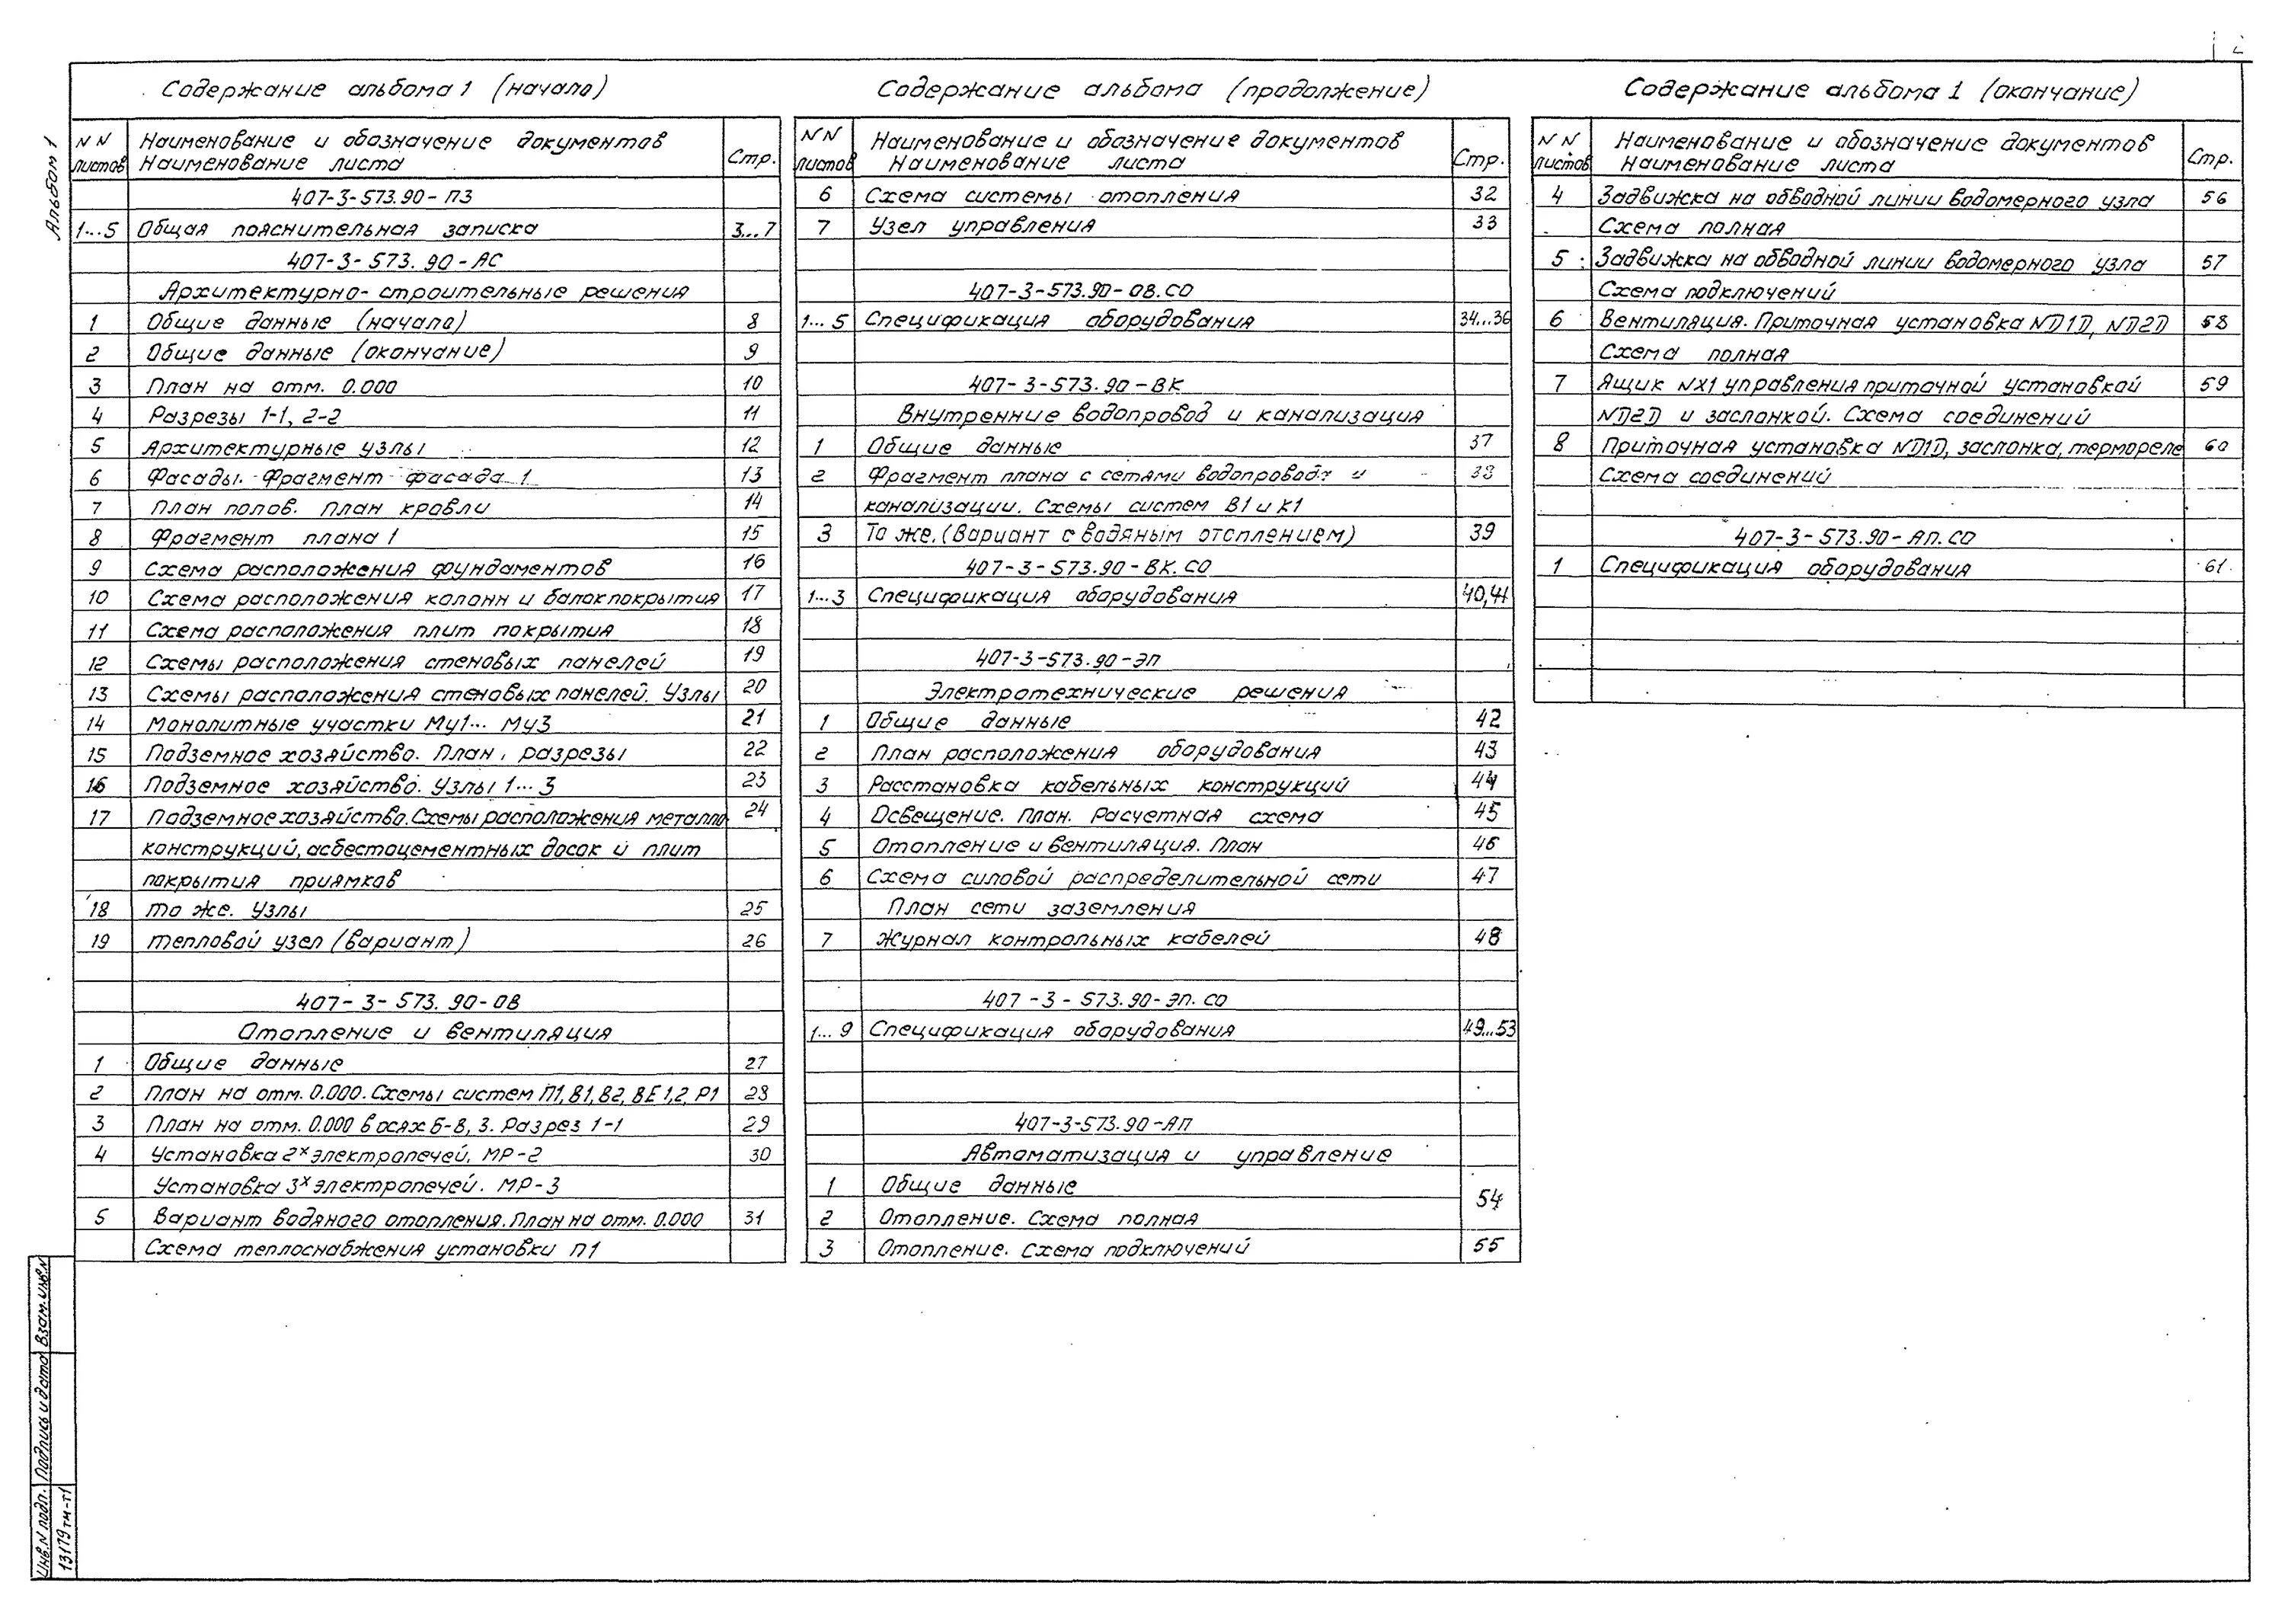 2
Альбом 1
Содержание альбома 1 (начало)
NN листов Наименование и обозначение документов Стр.
Наименование листа
407-3-573.90-ПЗ
1...5 Общая пояснительная записка 3...7
407-3-573.90-АС
Архитектурно-строительные решения
1 Общие данные (начало) 8
2 Общие данные (окончание) 9
3 План на отм. 0.000 10
4 Разрезы 1-1, 2-2 11
5 Архитектурные узлы 12
6 Фасады. Фрагмент фасада 1 13
7 План полов. План кровли 14
8 Фрагмент плана 1 15
9 Схема расположения фундаментов 16
10 Схема расположения колонн и балок покрытия 17
11 Схема расположения плит покрытия 18
12 Схемы расположения стеновых панелей 19
13 Схемы расположения стеновых панелей. Узлы 20
14 Монолитные участки Му1... Му3 21
15 Подземное хозяйство. План, разрезы 22
16 Подземное хозяйство. Узлы 1...3 23
17 Подземное хозяйство. Схемы расположения металло 24
конструкций, асбестоцементных досок и плит
покрытия приямков
18 То же. Узлы 25
19 Тепловой узел (вариант) 26
407-3-573.90-ОВ
Отопление и вентиляция
1 Общие данные 27
2 План на отм. 0.000. Схемы систем П1, В1, В2, ВЕ1,2, Р1 28
3 План на отм. 0.000 в осях Б-В, 3. Разрез 1-1 29
4 Установка 2х электропечей. МР-2 30
Установка 3х электропечей. МР-3
5 Вариант водяного отопления. План на отм. 0.000 31
Схема теплоснабжения установки П1
Содержание альбома (продолжение)
NN листов Наименование и обозначение документов Стр.
Наименование листа
6 Схема системы отопления 32
7 Узел управления 33
407-3-573.90-ОВ.СО
1...5 Спецификация оборудования 34...36
407-3-573.90-ВК
Внутренние водопровод и канализация
1 Общие данные 37
2 Фрагмент плана с сетями водопровода и 38
канализации. Схемы систем В1 и К1
3 То же. (Вариант с водяным отоплением) 39
407-3-573.90-ВК.СО
1...3 Спецификация оборудования 40,41
407-3-573.90-ЭП
Электротехнические решения
1 Общие данные 42
2 План расположения оборудования 43
3 Расстановка кабельных конструкций 44
4 Освещение. План. Расчетная схема 45
5 Отопление и вентиляция. План 46
6 Схема силовой распределительной сети 47
План сети заземления
7 Журнал контрольных кабелей 48
407-3-573.90-ЭП.СО
1...9 Спецификация оборудования 49...53
407-3-573.90-АП
Автоматизация и управление
1 Общие данные 54
2 Отопление. Схема полная
3 Отопление. Схема подключений 55
Содержание альбома 1 (окончание)
NN листов Наименование и обозначение документов Стр.
Наименование листа
4 Задвижка на обводной линии водомерного узла 56
Схема полная
5 Задвижка на обводной линии водомерного узла 57
Схема подключений
6 Вентиляция. Приточная установка NП1П, NП2П 58
Схема полная
7 Ящик NХ1 управления приточной установкой 59
NП2П и заслонкой. Схема соединений
8 Приточная установка NП1П, заслонка, термореле 60
Схема соединений
407-3-573.90-АП.СО
1 Спецификация оборудования 61
Инв. N подл. Подпись и дата Взам. инв. N
13179тм-т1